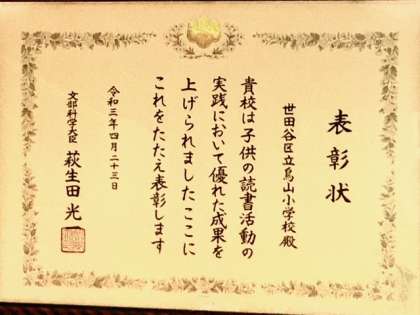 表彰状
世田谷区立烏山小学校殿
貴校は子供の読書活動の
実践において優れた成果を
上げられましたここに
これをたたえ表彰します
令和三年四月二十三日
文部科学大臣 萩生田光一